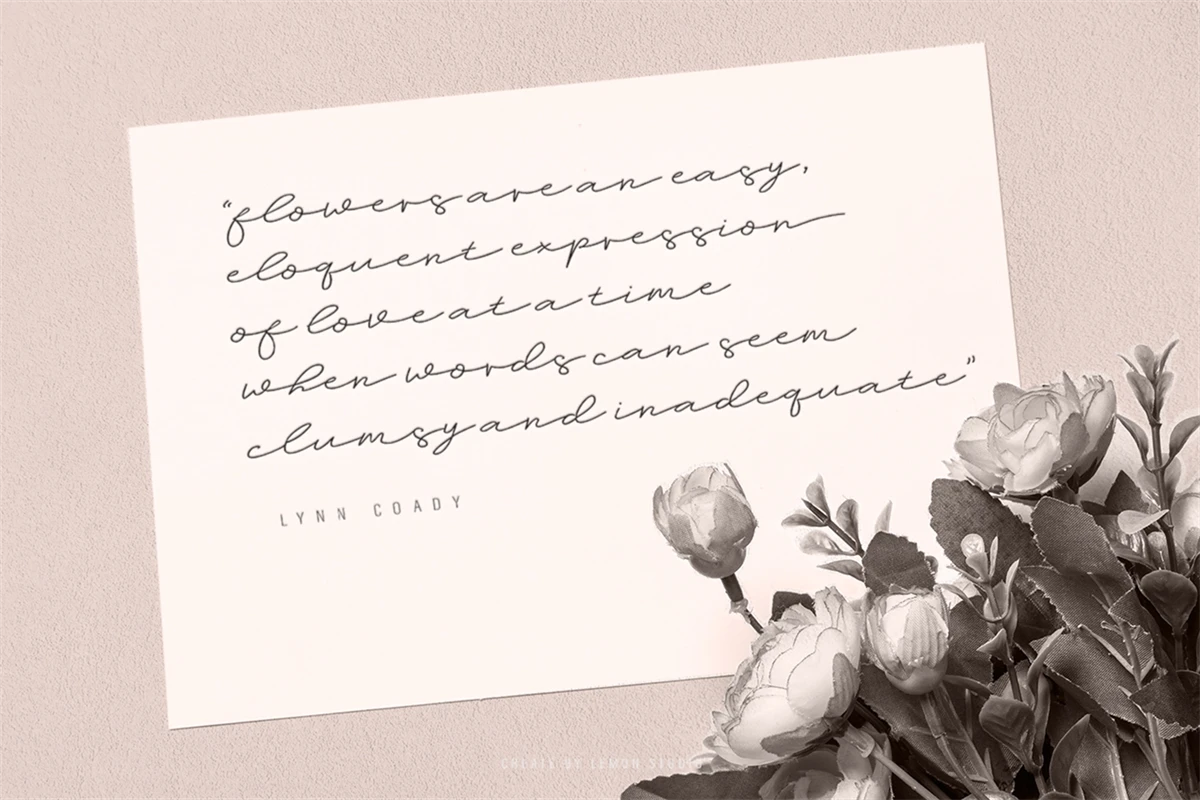 “flowers are an easy,
eloquent expression
of love at a time
when words can seem
clumsy and inadequate”
LYNN COADY
CREATE BY LEMON STUDIO